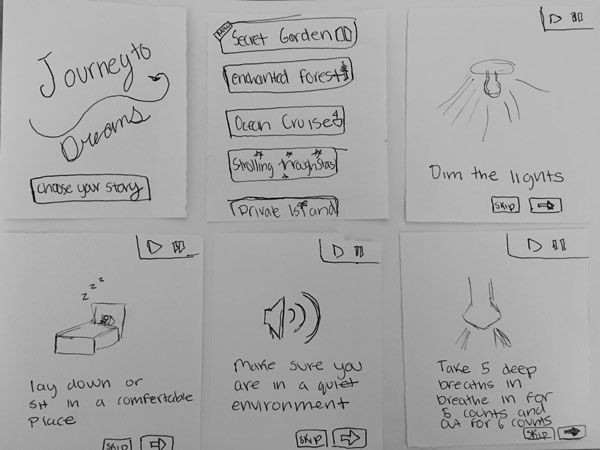 Journey to
Dreams
Choose your story
Secret Garden
enchanted Forest
Ocean Cruise
Strolling through Stars
Private Island
Dim the lights
SKIP
lay down or
sit in a comfertable
place
SKIP
make sure you
are in a quiet
environment
SKIP
Take 5 deep
breaths in
breathe in for
5 counts and
out for 6 counts
SKIP
z z z